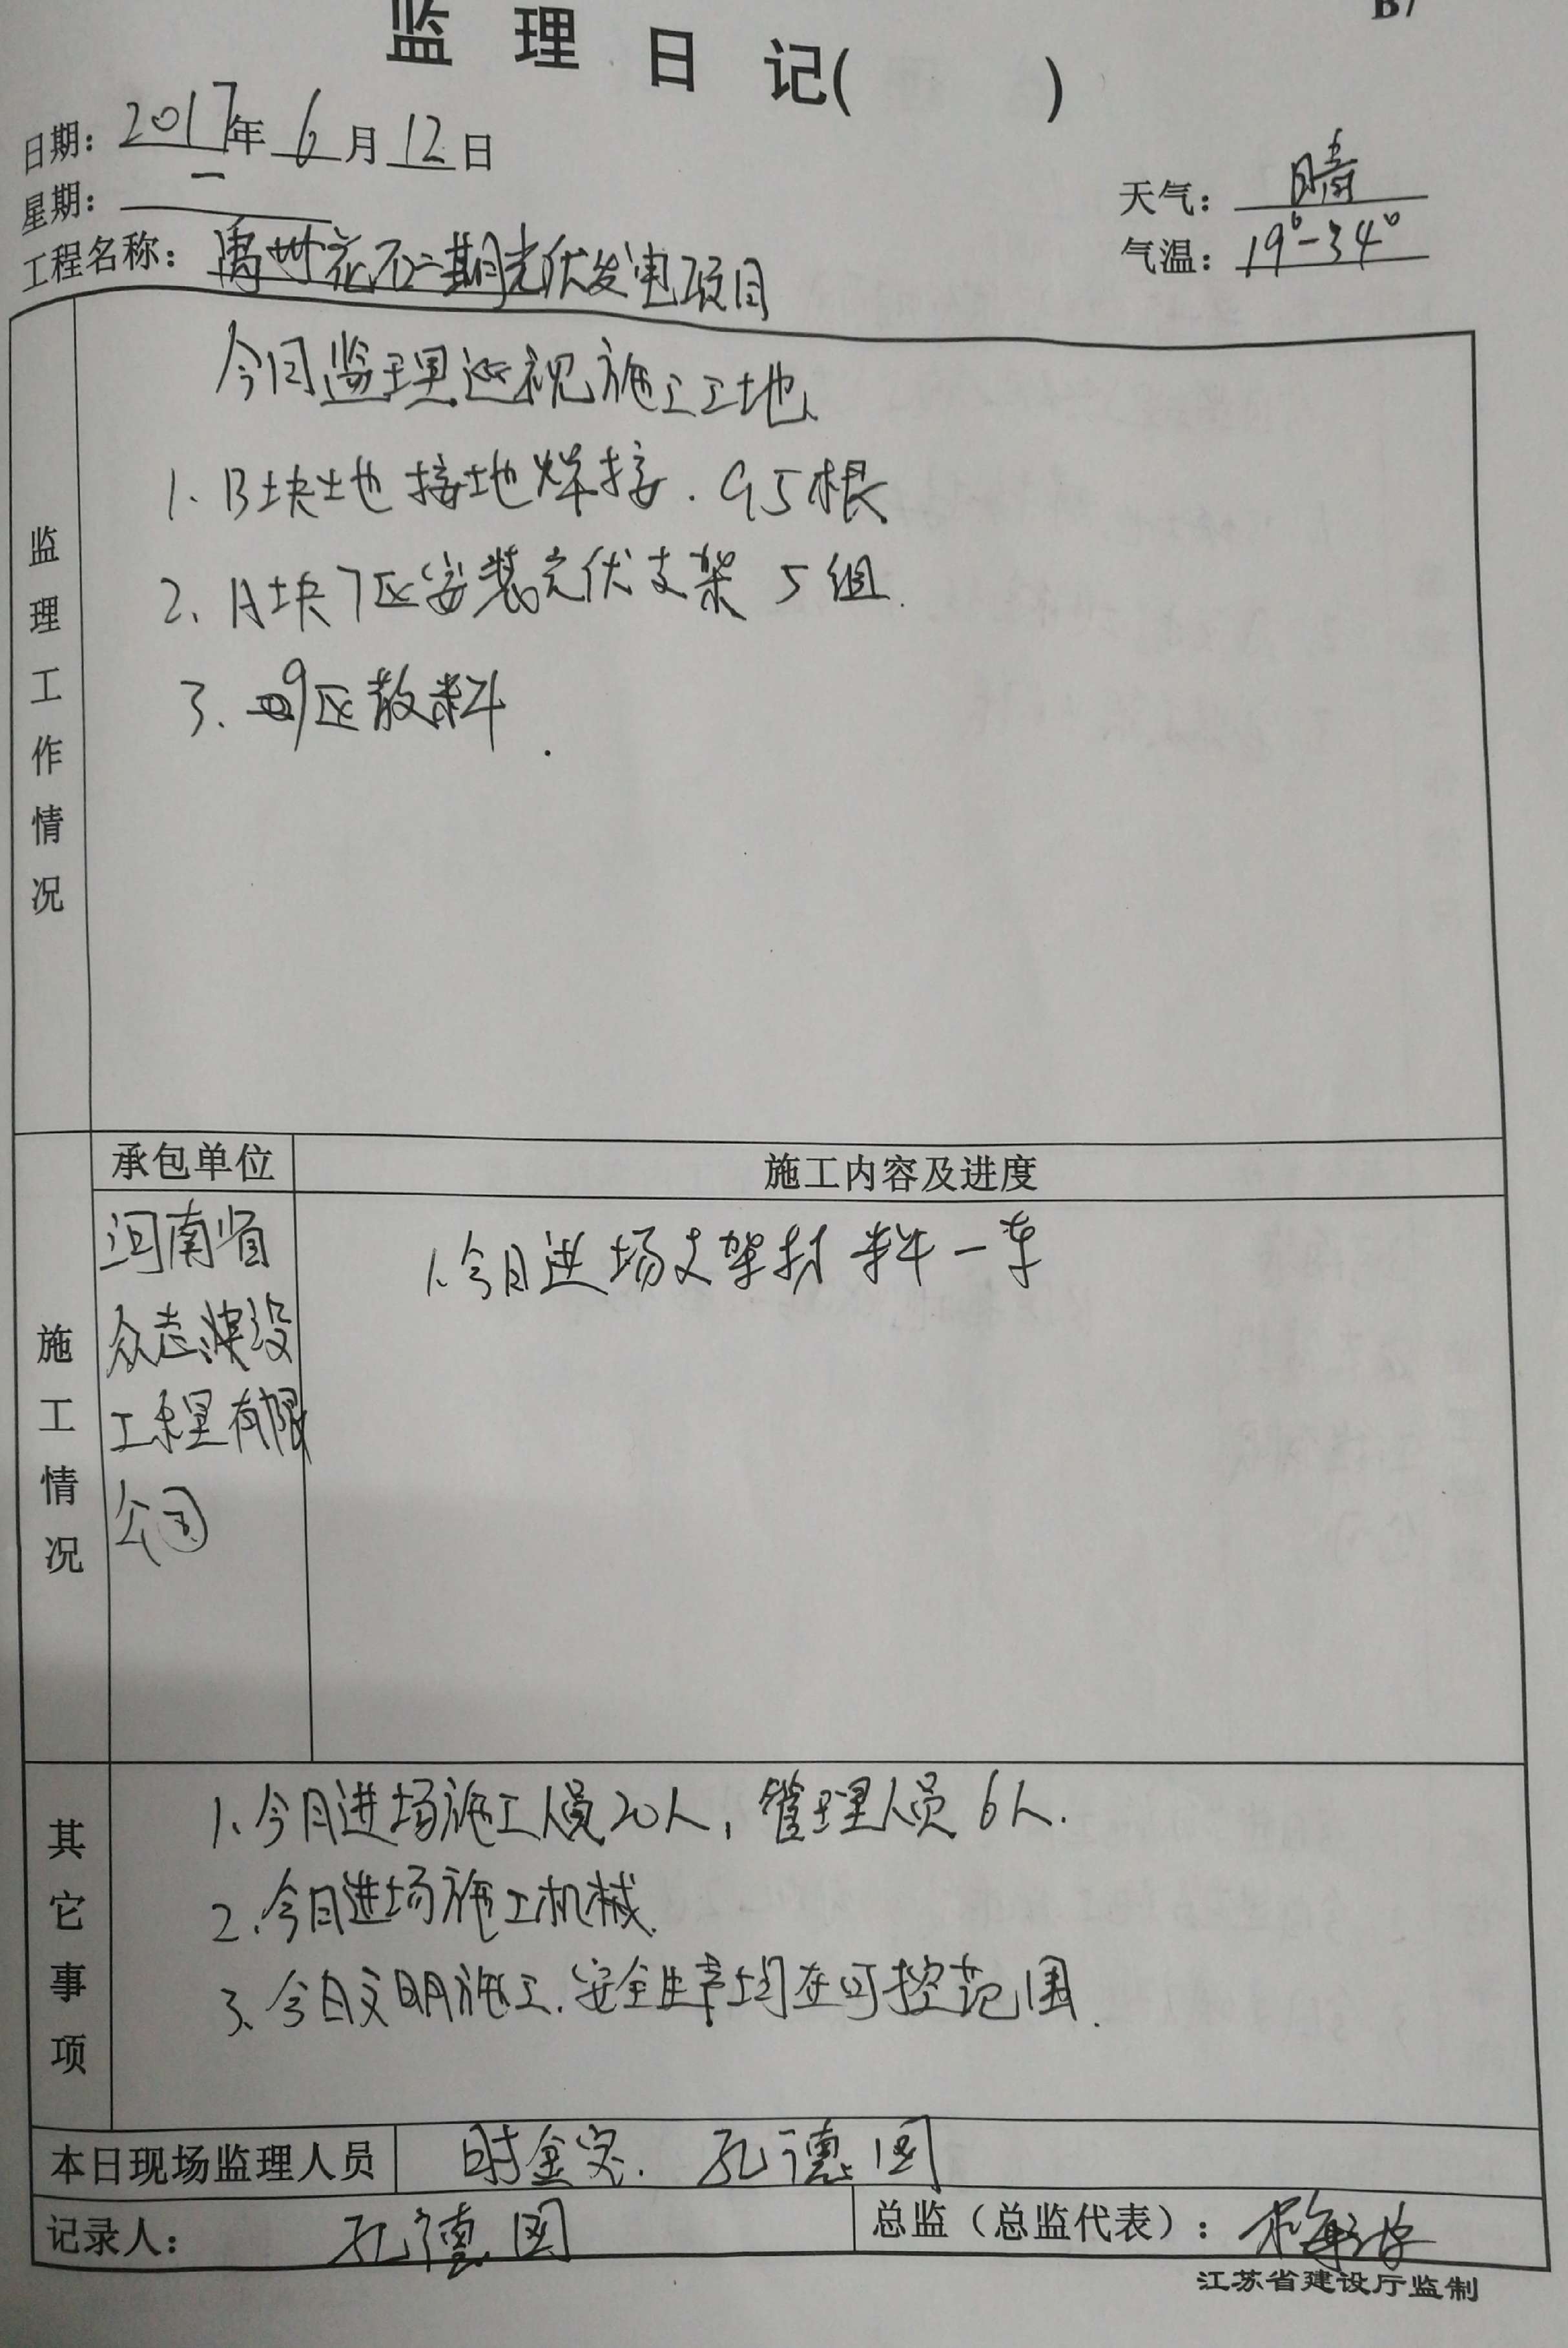 B7
监理日记( )
日期：2017年6月12日
星期：一
天气：晴
气温：19°-34°
工程名称：禹州花石二期光伏发电项目
监理工作情况
今日监理巡视施工工地
1、B块地接地焊接．95根
2、A块7区安装光伏支架5组．
3．9区散料．
施工情况
承包单位
施工内容及进度
河南省
众志建设
工程有限
公司
1、今日进场支架材料一车
其它事项
1、今日进场施工人员20人，管理人员6人．
2、今日进场施工机械．
3、今日文明施工．安全生产均在可控范围．
本日现场监理人员 时金宝．孔德国
记录人：孔德国
总监（总监代表）：
江苏省建设厅监制